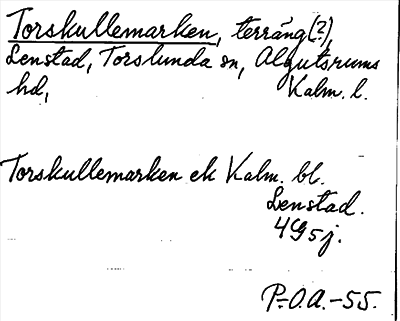 Torskullemarken, terräng(?),
Lenstad, Torslunda sn, Algutsrums
hd, Kalm. l.
Torskullemarken ek Kalm. bl.
Lenstad.
4G5j.
P.-O.A.-55.